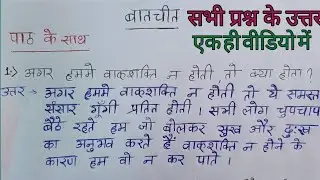 बातचीत
सभी प्रश्न के उत्तर
एक ही वीडियो में
पाठ के साथ
1:) अगर हममें वाक्शक्ति न होती, तो क्या होता ?
उत्तर - अगर हममें वाक्शक्ति न होती तो ये समस्त
संसार गूँगी प्रतित होती। सभी लोग चुपचाप
बैठे रहते हम जो बोलकर सुख और दुःख
का अनुभव करते हैं वाक्शक्ति न होने के
कारण हम वो न कर पाते ।